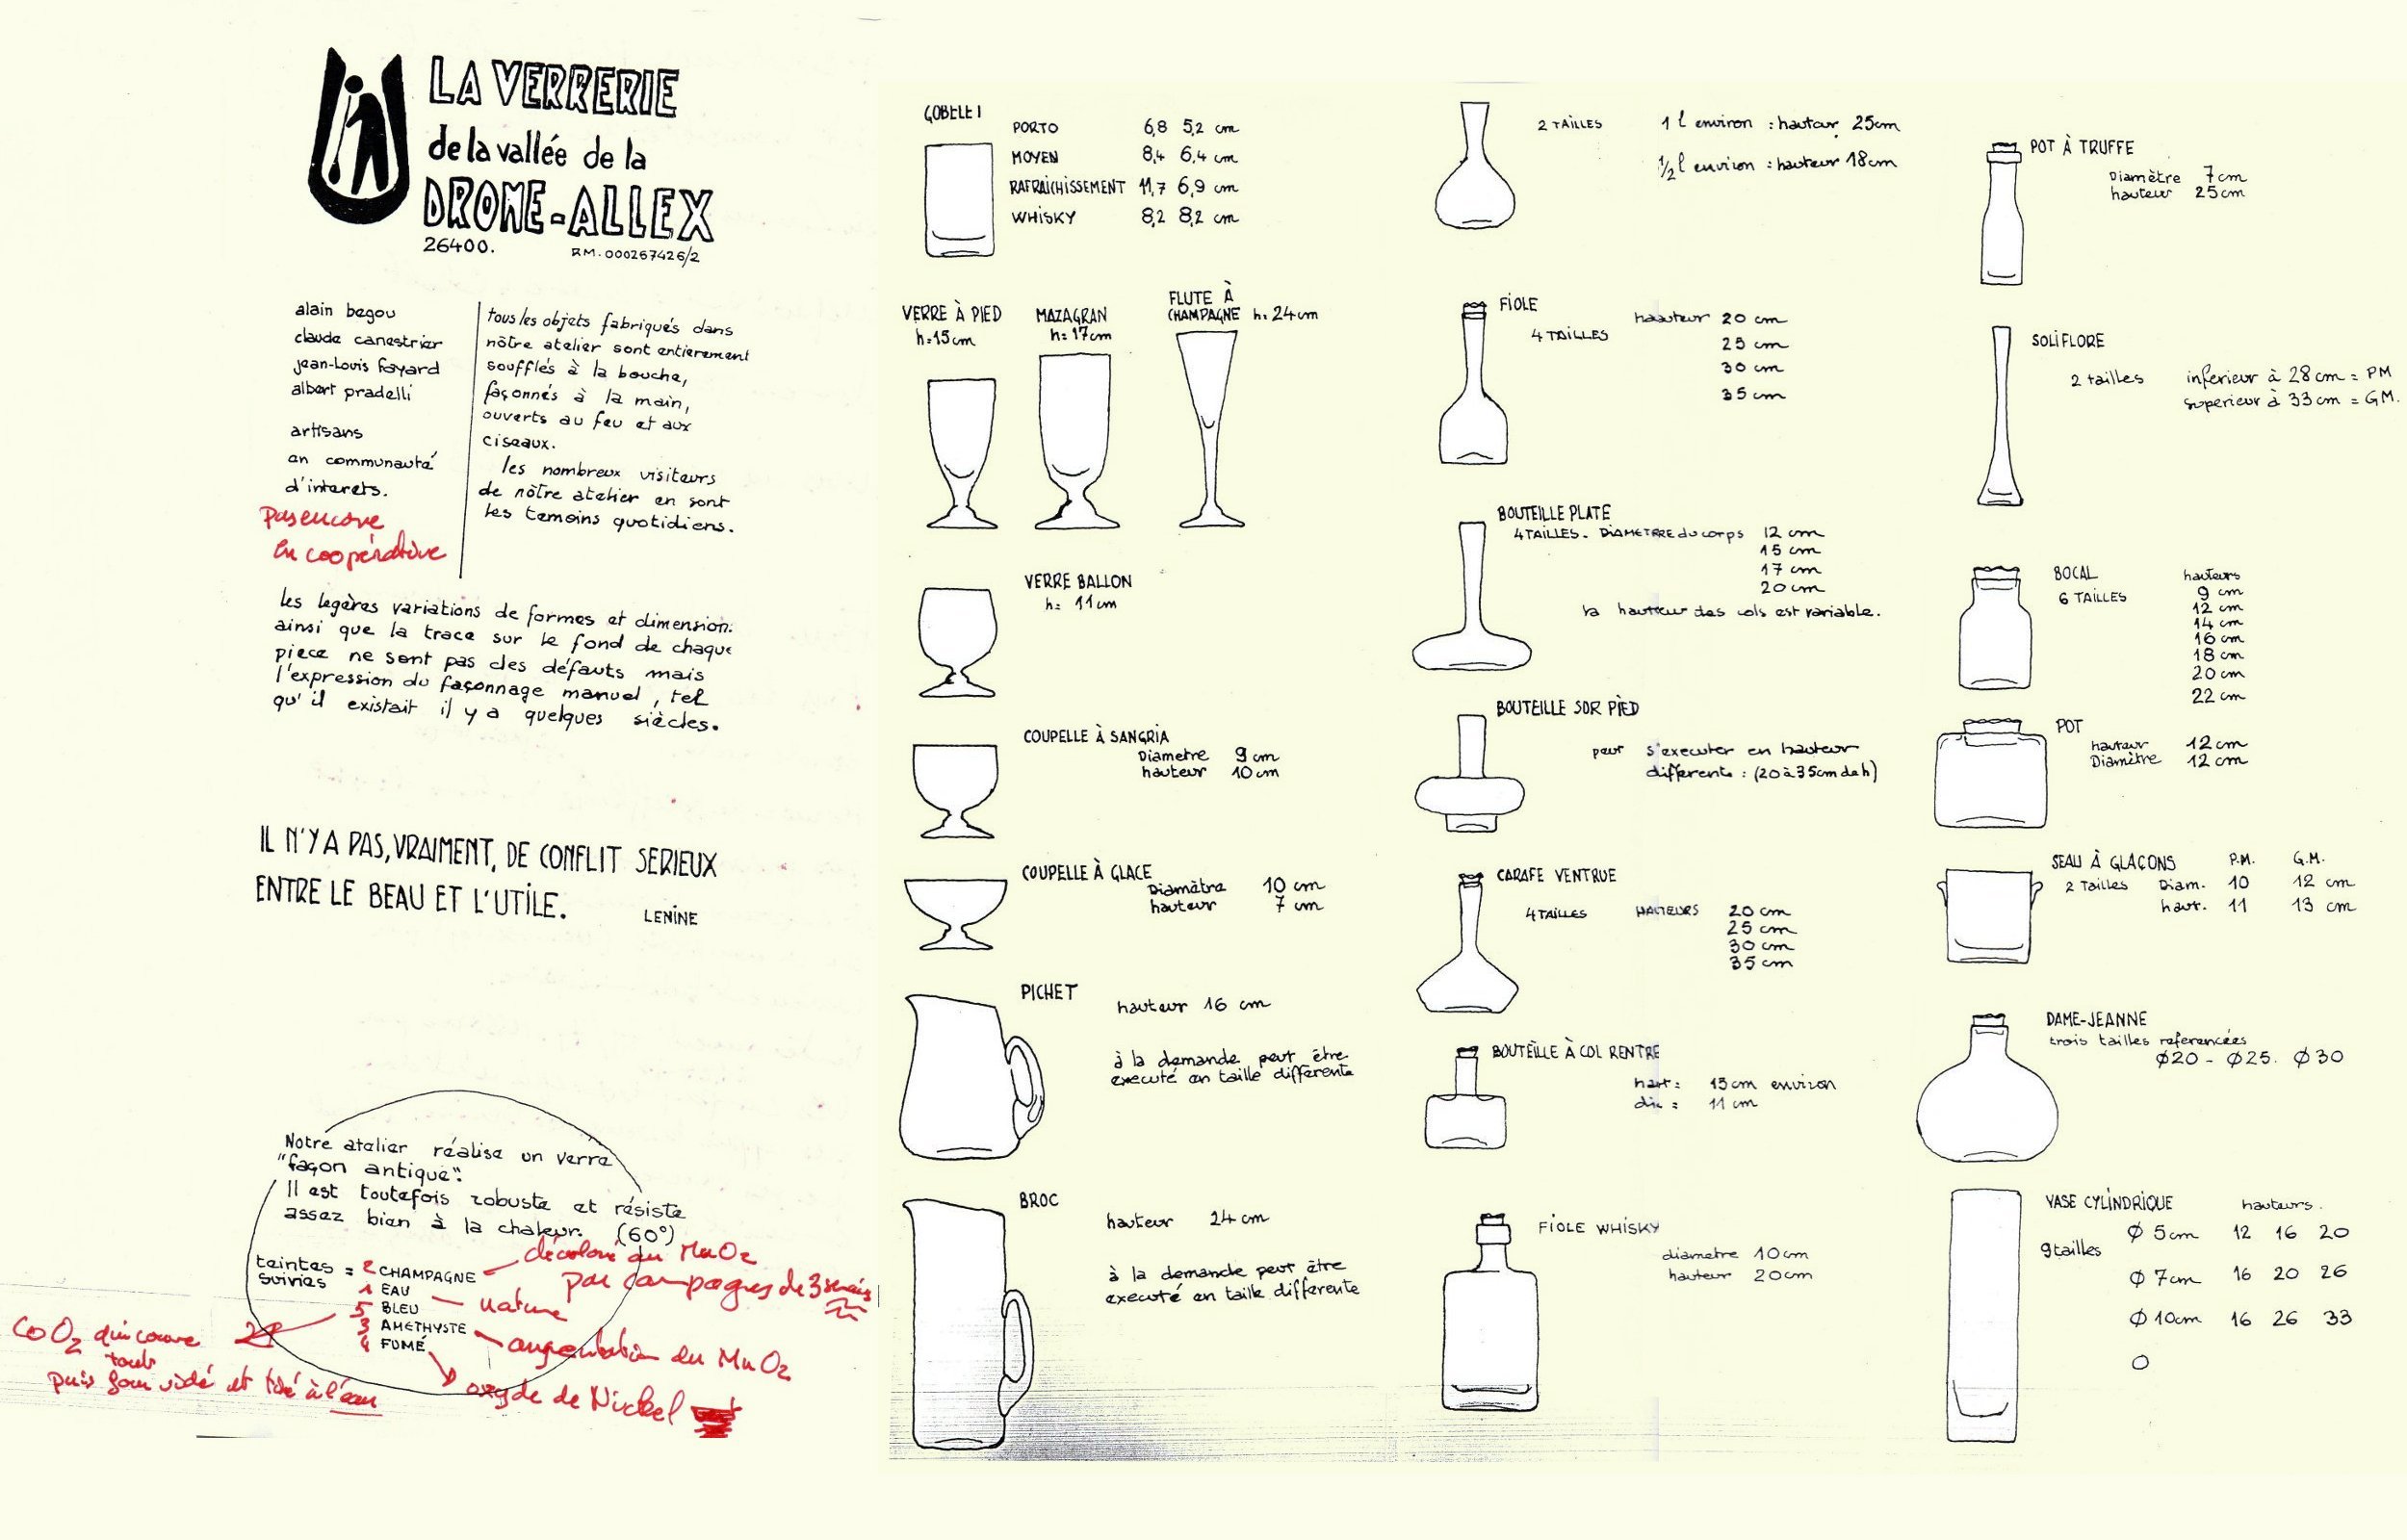 LA VERRERIE
de la vallée de la
DROME-ALLEX
26400.
RM.000267426/2
alain begou
claude canestrier
jean-Louis fayard
albert pradelli
artisans
en communauté
d'interets.
pas encore
en coopérative
tous les objets fabriqués dans
nôtre atelier sont entierement
soufflés à la bouche,
façonnés à la main,
ouverts au feu et aux
ciseaux.
les nombreux visiteurs
de nôtre atelier en sont
les temoins quotidiens.
les legères variations de formes et dimension.
ainsi que la trace sur le fond de chaque
piece ne sont pas des défauts mais
l'expression du façonnage manuel, tel
qu'il existait il y a quelques siècles.
IL N'Y A PAS, VRAIMENT, DE CONFLIT SERIEUX
ENTRE LE BEAU ET L'UTILE.
LENINE
Notre atelier réalise un verre
"façon antique".
Il est toutefois robuste et résiste
assez bien à la chaleur. (60°)
teintes suivies =
2 CHAMPAGNE
décoloré au MnO2
par campagnes de 3 semais
1 EAU
nature
5 BLEU
CoO2 qui couvre
tout
puis four vidé et tiré à l'eau
3 AMETHYSTE
augmentation du MnO2
4 FUMÉ
oxyde de Nickel
GOBELET
PORTO 6,8 5,2 cm
MOYEN 8,4 6,4 cm
RAFRAICHISSEMENT 11,7 6,9 cm
WHISKY 8,2 8,2 cm
VERRE À PIED
h=15cm
MAZAGRAN
h=17cm
FLUTE À
CHAMPAGNE h=24cm
VERRE BALLON
h= 11cm
COUPELLE À SANGRIA
Diametre 9 cm
hauteur 10 cm
COUPELLE À GLACE
Diamètre 10 cm
hauteur 7 cm
PICHET
hauteur 16 cm
à la demande peut être
executé en taille differente
BROC
hauteur 24 cm
à la demande peut être
executé en taille differente
2 TAILLES
1 l environ : hauteur 25cm
1/2 l environ : hauteur 18cm
FIOLE
4 TAILLES
haauteur 20 cm
25 cm
30 cm
35 cm
BOUTEILLE PLATE
4 TAILLES. DIAMETRRE du corps 12 cm
15 cm
17 cm
20 cm
la hauteur des cols est variable.
BOUTEILLE SUR PIED
peut s'executer en hauteur
differente : (20 à 35cm de h)
CARAFE VENTRUE
4 TAILLES HAUTEURS 20 cm
25 cm
30 cm
35 cm
BOUTEILLE À COL RENTRE
haut = 15 cm environ
dia = 11 cm
FIOLE WHISKY
diametre 10cm
hauteur 20cm
POT À TRUFFE
Diamètre 7cm
hauteur 25cm
SOLIFLORE
2 tailles
inferieur à 28 cm = PM
superieur à 33 cm = GM.
BOCAL
6 TAILLES
hauteurs
9 cm
12 cm
14 cm
16 cm
18 cm
20 cm
22 cm
POT
hauteur 12 cm
Diamètre 12 cm
SEAU À GLAÇONS P.M. G.M.
2 Tailles Diam. 10 12 cm
haut. 11 13 cm
DAME-JEANNE
trois tailles referencées
Ø20 - Ø25. Ø30
VASE CYLINDRIQUE hauteurs.
9 tailles
Ø 5cm 12 16 20
Ø 7cm 16 20 26
Ø 10cm 16 26 33